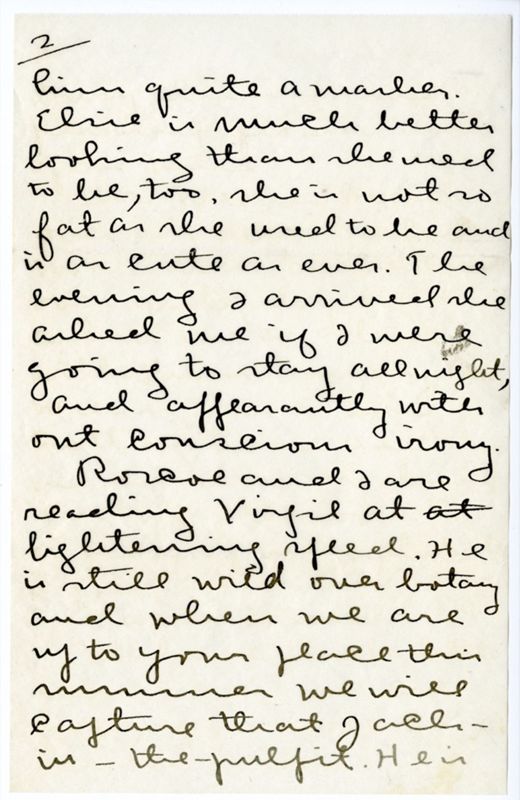 2
him quite a masher.
Elsie is much better
looking than she used
to be, too. she is not so
fat as she used to be and
is as cute as ever. The
evening I arrived she
asked me if I were
going to stay all night,
and appearantly with
out conscious irony.
Roscoe and I are
reading Virgil at at
lightening speed. He
is still wild over botany
and when we are
up to your place this
summer we will
capture that Jack-
in-the-pulpit. He is